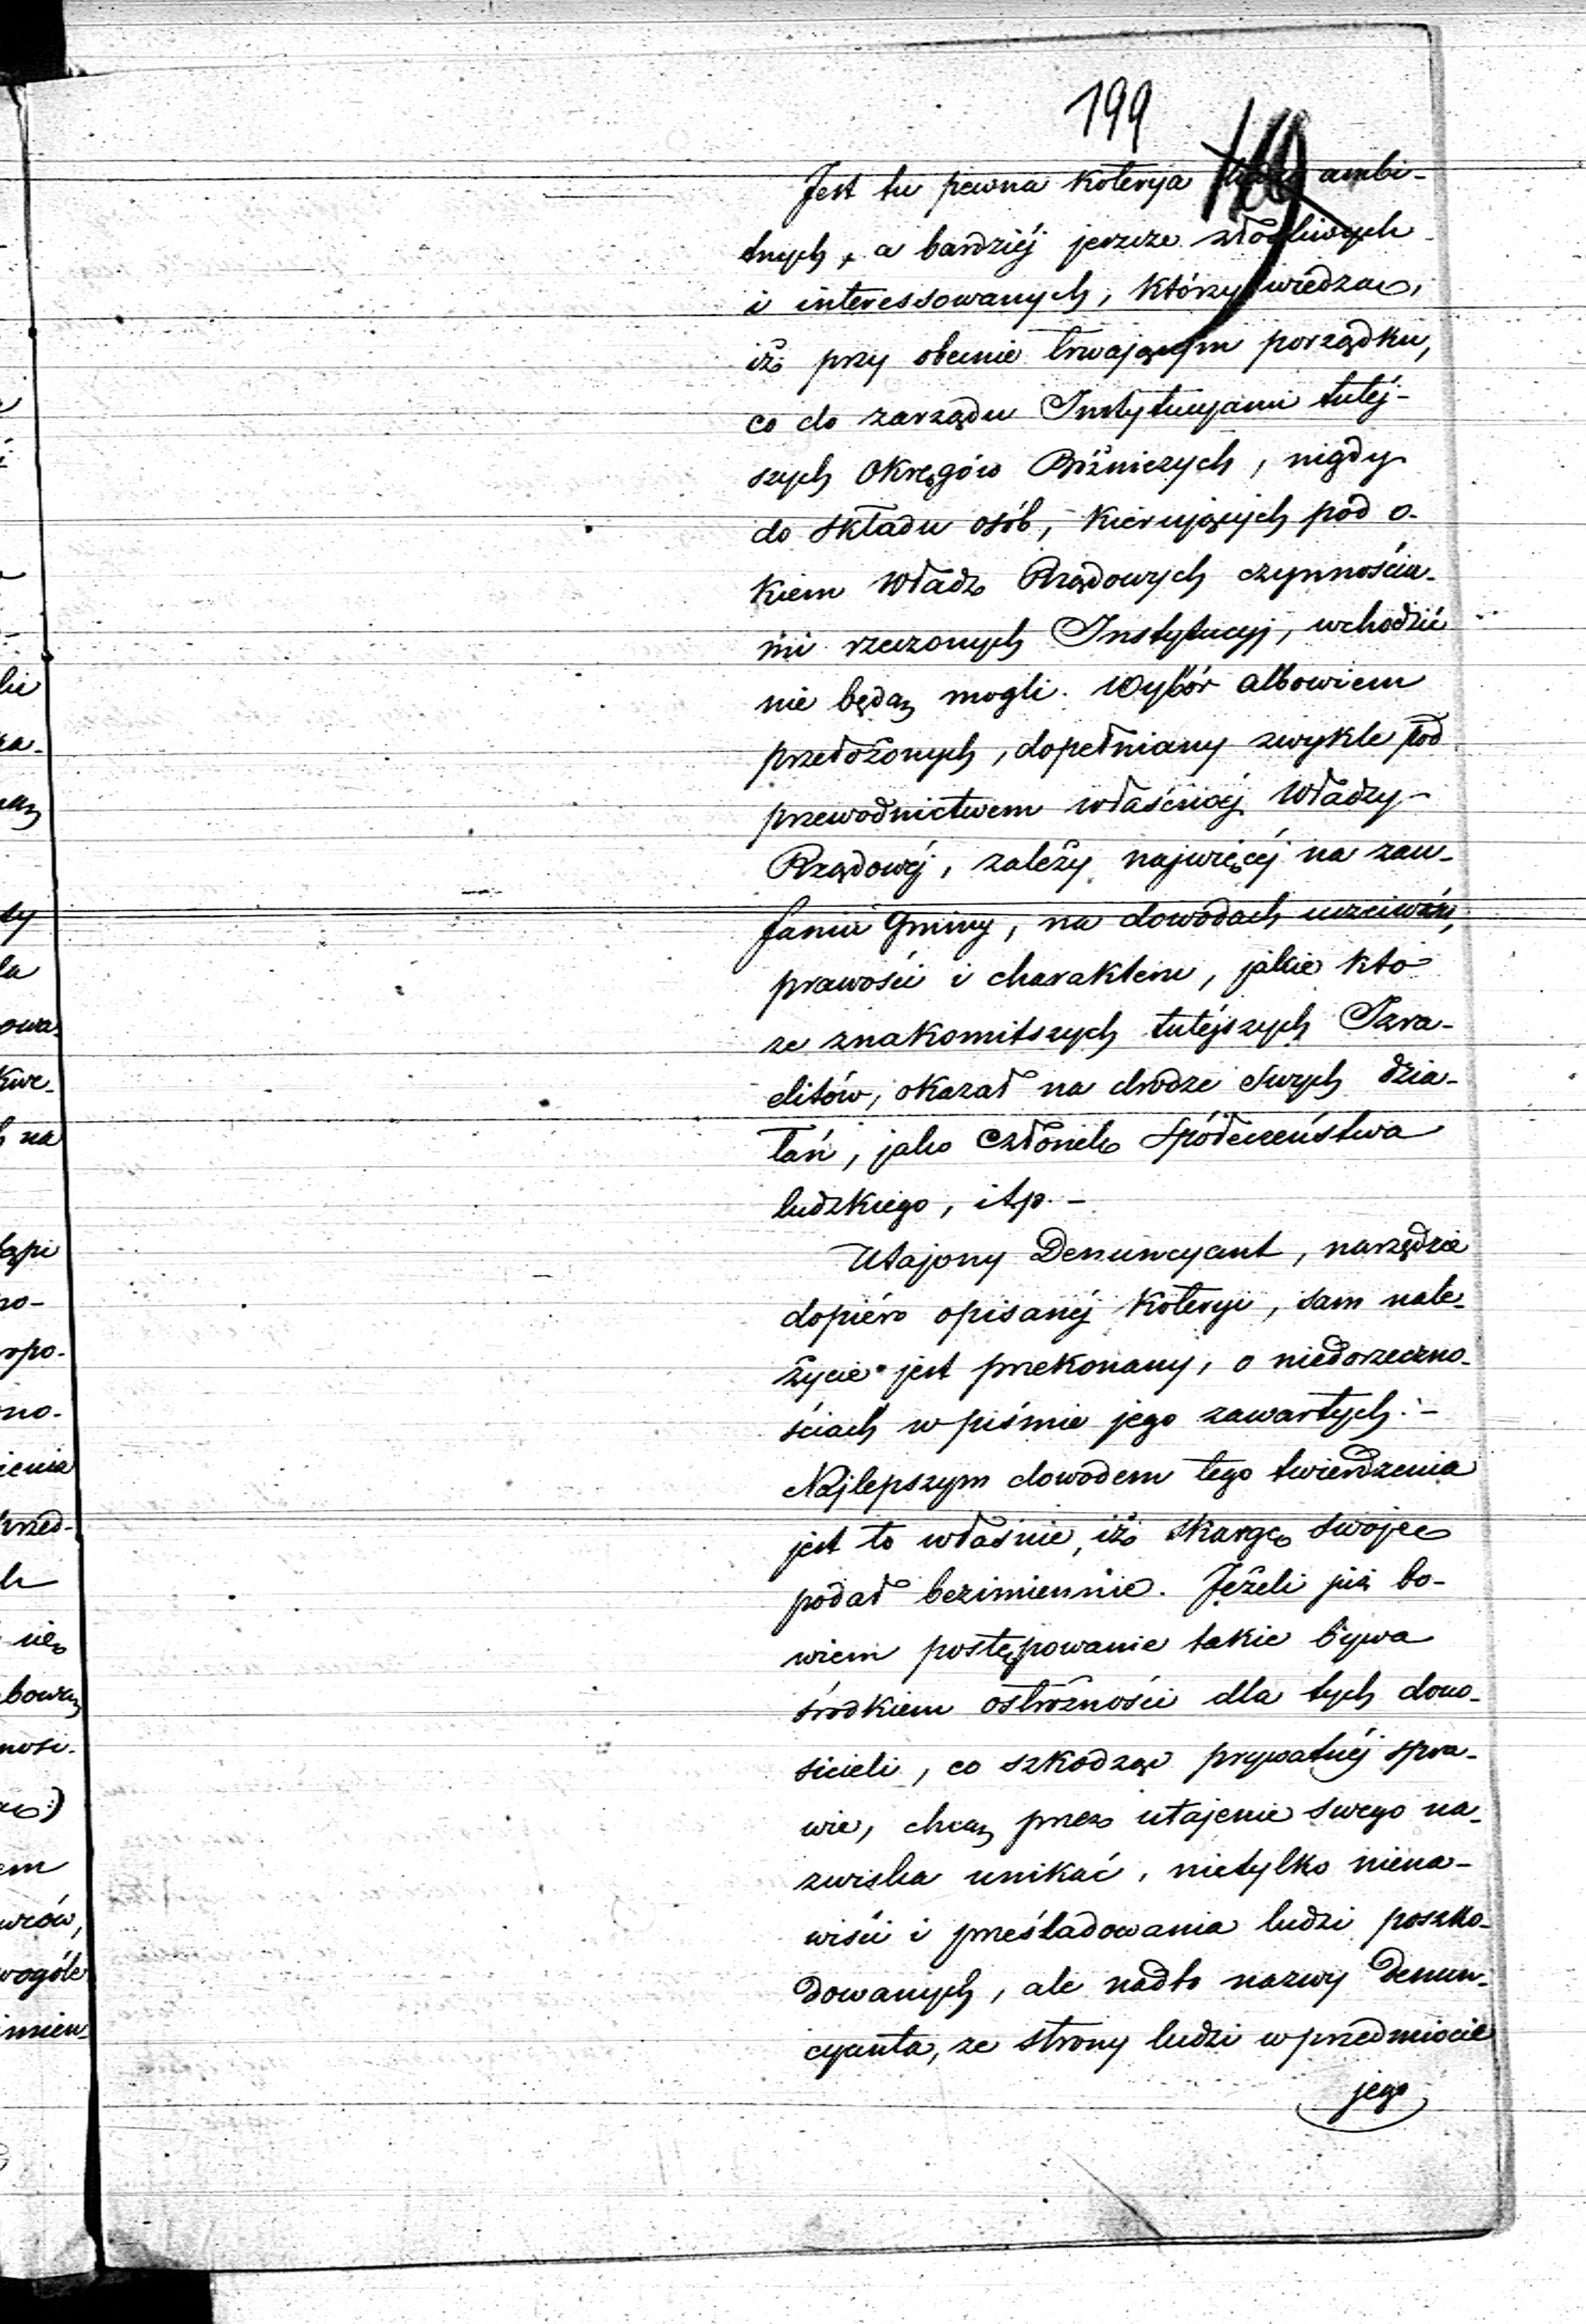 199
169
Jest tu pewna Koteryja ambi-
tnych, a bardziéj jeszcze złośliwych
i interessowanych, którzy wiedząc,
iż przy obecnie trwającym porządku,
co do zarządu Instytucyjami tutéj-
szych Okręgów Bóźniczych, nigdy
do składu osób, Kierujących pod o-
kiem Władz Rządowych czynnościa-
mi rzeczonych Instytucyj, wchodzić
nie będą mogli. Wybór albowiem
przełożonych, dopełniany zwykle pod
przewodnictwem właściwéj Władzy
Rządowéj, zależy najwięcéj na zau-
faniu Gminy, na dowodach uczciwości,
prawości i charakteru, jakie kto
ze znakomitszych tutéjszych Izra-
elitów, okazał na drodze swych dzia-
łań, jako Członek Spółeczeństwa
ludzkiego, itp. -
Utajony Denuncyant, narzędzie
dopiéro opisanéj Koteryi, sam nale-
życie jest przekonany, o niedorzeczno-
ściach w piśmie jego zawartych. -
Najlepszym dowodem tego twierdzenia
jest to właśnie, iż skargę swoję
podał bezimiennie. Jeżeli już bo-
wiem postępowanie takie bywa
środkiem ostrożności dla tych dono-
sicieli, co szkodząc prywatnéj spra-
wie, chcą przez utajenie swego na-
zwiska unikać, nietylko niena-
wiści i prześladowania ludzi poszko-
dowanych, ale nadto nazwy Denun-
cyanta, ze strony ludzi w przedmiocie
jego